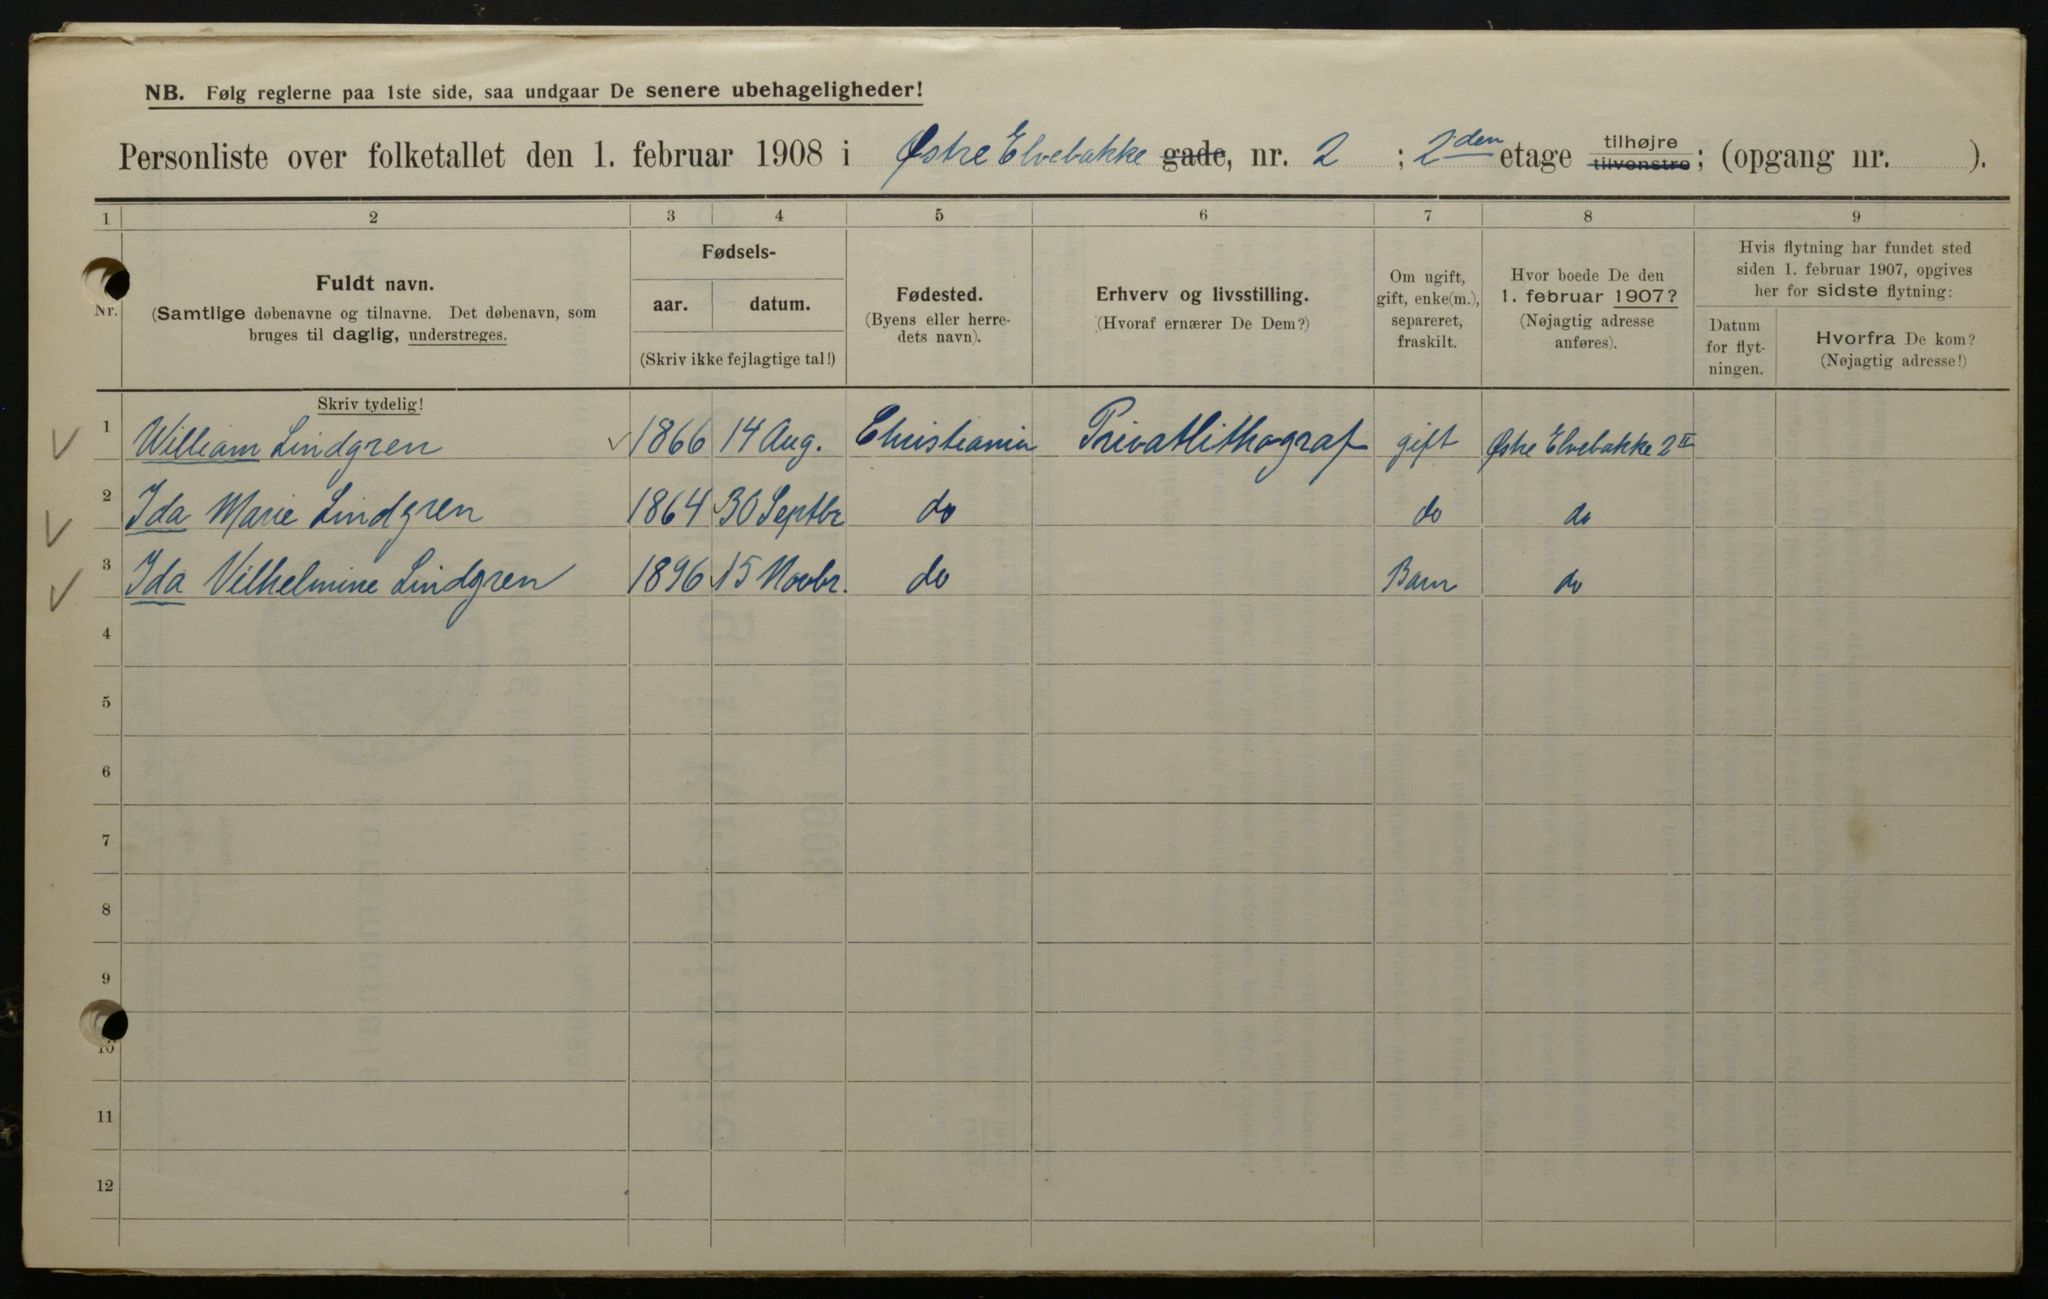 NB. Følg reglerne paa 1ste side, saa undgaar De senere ubehageligheder!
Personliste over folketallet den 1. februar 1908 i Østre Elvebakke gade, nr. 2 ; 2den etage tilhøjre tilvenstre; (opgang nr. ).
1 2 3 4 5 6 7 8 9
Nr.
Fuldt navn.
(Samtlige døbenavne og tilnavne. Det døbenavn, som
bruges til daglig, understreges.
Fødsels-
aar. datum.
(Skriv ikke fejlagtige tal!)
Fødested.
(Byens eller herre-
dets navn).
Erhverv og livsstilling.
(Hvoraf ernærer De Dem?)
Om ugift,
gift, enke(m.),
separeret,
fraskilt.
Hvor boede De den
1. februar 1907?
(Nøjagtig adresse
anføres).
Hvis flytning har fundet sted
siden 1. februar 1907, opgives
her for sidste flytning:
Datum
for flyt-
ningen.
Hvorfra De kom?
(Nøjagtig adresse!)
Skriv tydelig!
1 William Lindgren 1866 14 Aug. Christiania Privatlithograf gift Østre Elvebakke 2 II
2 Ida Marie Lindgren 1864 30 Septbr do do do
3 Ida Vilhelmine Lindgren 1896 15 Novbr. do Barn do
4
5
6
7
8
9
10
11
12